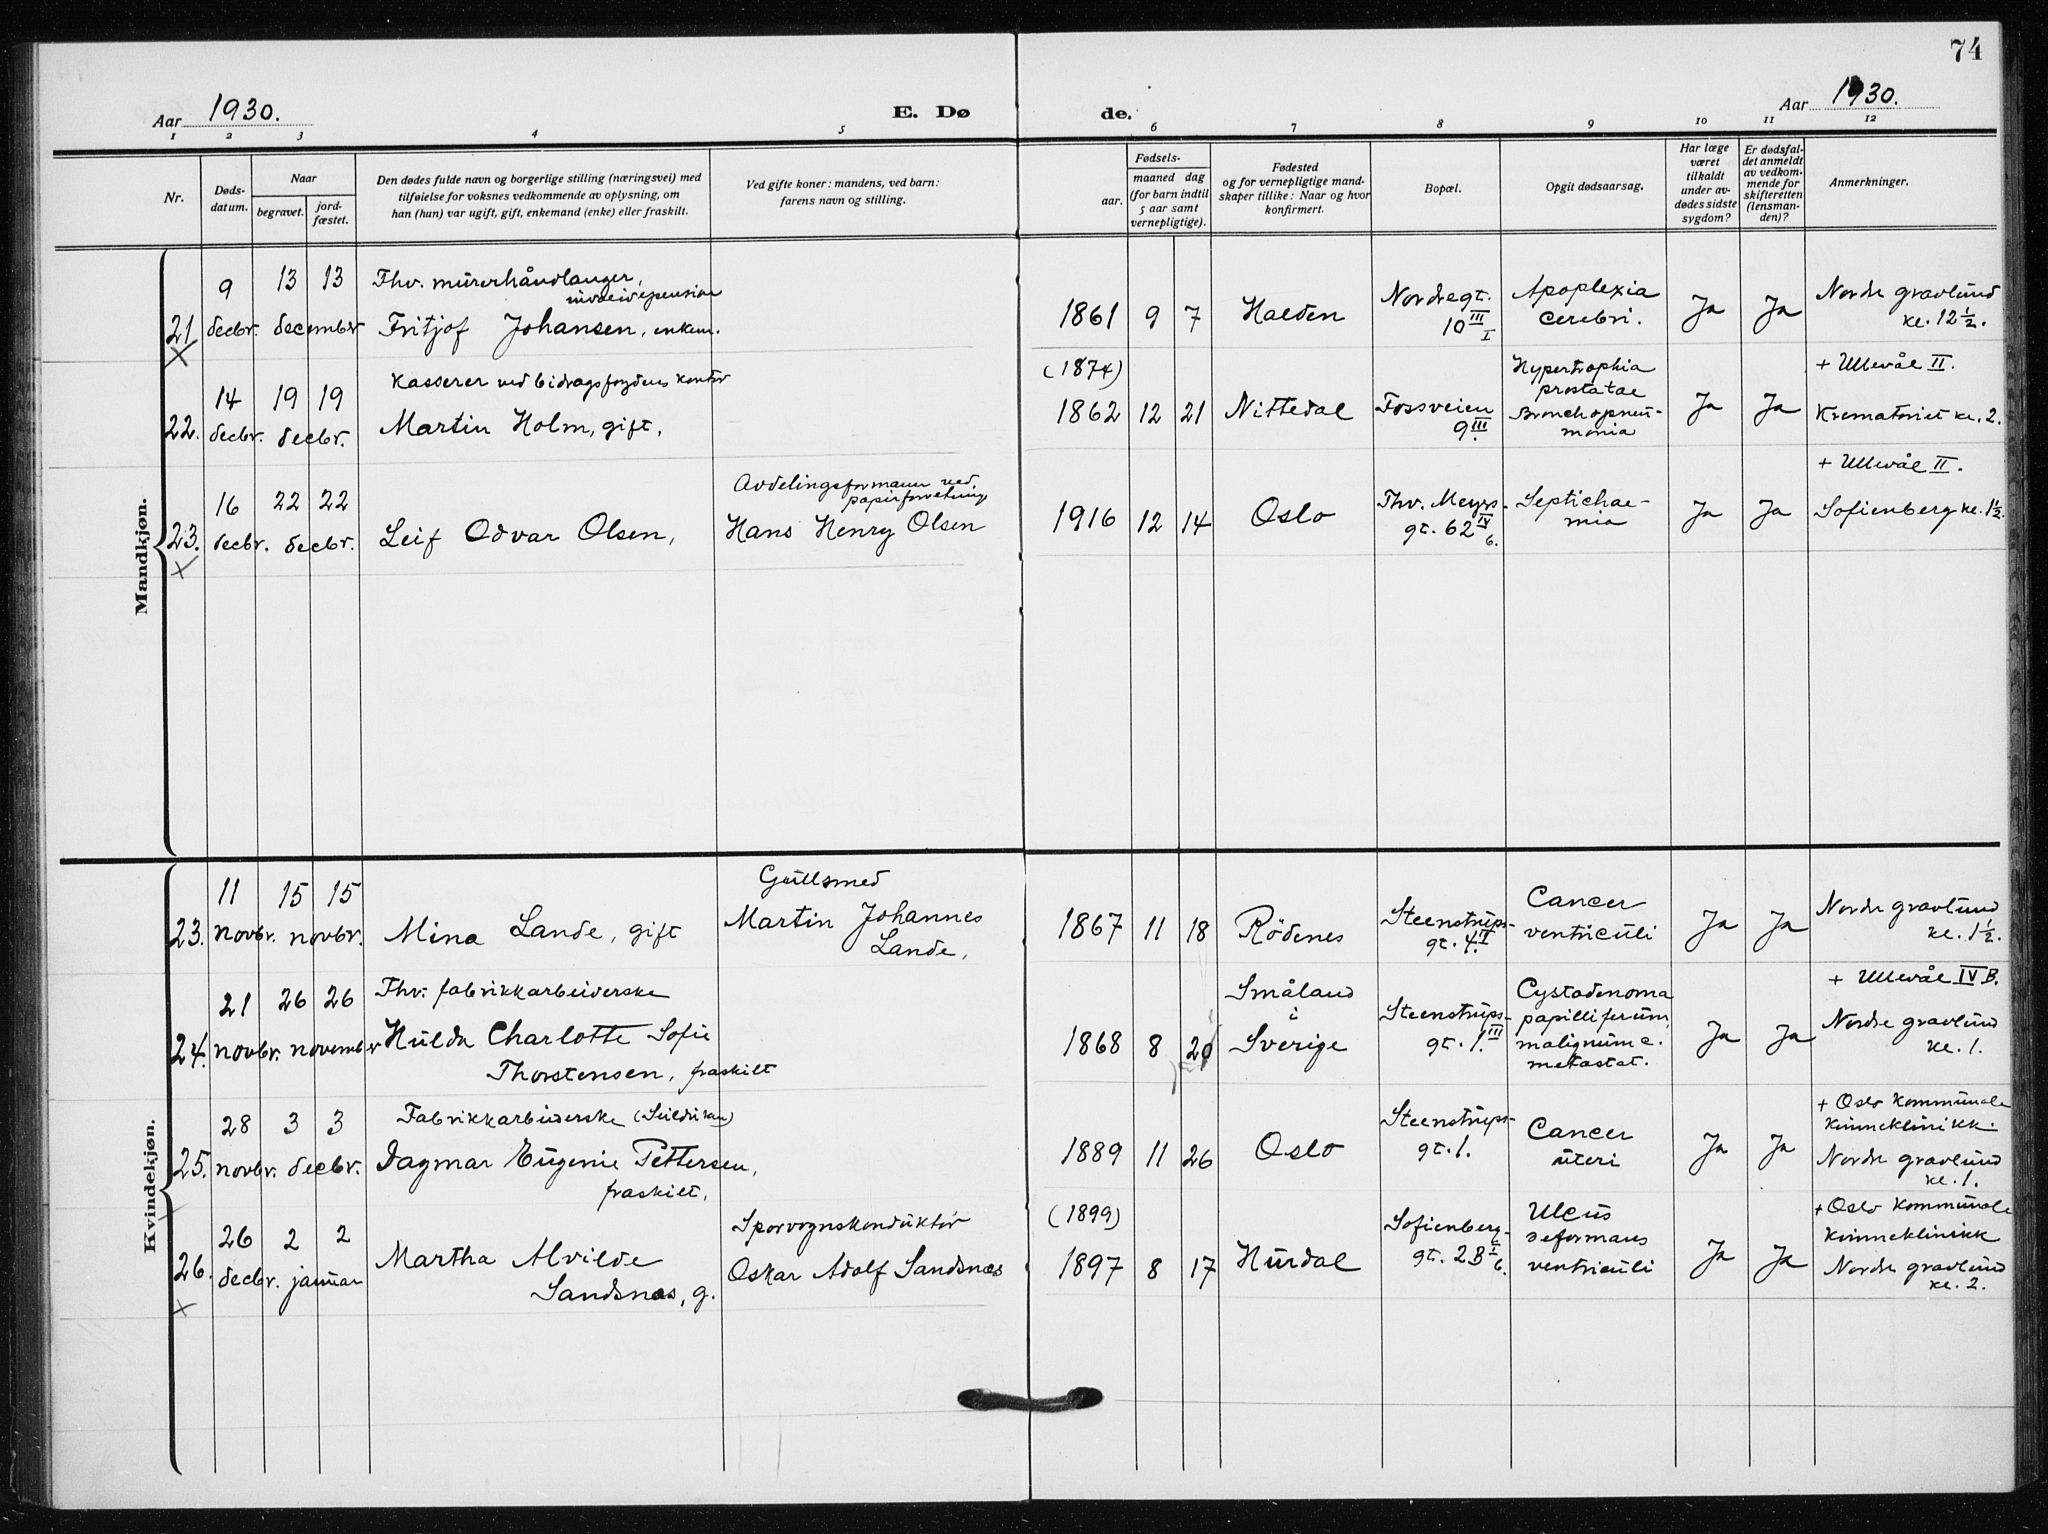 74
Aar 1930.
E. Dø
de.
Aar 1930.
1 2 3 4 5 6 7 8 9 10 11 12
Nr.
Døds-
datum.
Naar
begravet.
jord-
fæstet.
Den dødes fulde navn og borgerlige stilling (næringsvei) med
tilføielse for voksnes vedkommende av oplysning, om
han (hun) var ugift, gift, enkemand (enke) eller fraskilt.
Ved gifte koner: mandens, ved barn:
farens navn og stilling.
Fødsels-
aar.
maaned dag
(for barn indtil
5 aar samt
vernepligtige).
Fødested
og for vernepligtige mand-
skaper tillike: Naar og hvor
konfirmert.
Bopæl.
Opgit dødsaarsag.
Har læge
været
tilkaldt
under av-
dødes sidste
sygdom?
Er dødsfal-
det anmeldt
av vedkom-
mende for
skifteretten
(lensman-
den)?
Anmerkninger.
Mandkjøn.
21
X
9
decbr.
13 13
december
Fhv. murerhåndlanger,
Fritjof Johansen, enkem.
1861 9 7
Halden
Nordregt.
10 III
I
Apoplexia
cerebri.
Ja Ja
Nordre gravlund
kl. 12 1/2.
22.
14
decbr.
19 19
decbr.
Kasserer ved bidragsfogdens kontor
Martin Holm, gift,
(1874)
1862 12 21
Nittedal
Fossveien
9 III.
Hypertrophia
prostatae
Bronchopneu-
monia
Ja Ja
+ Ullevål II.
Krematoriet kl. 2.
23.
X
16
decbr.
22 22
decbr.
Leif Odvar Olsen,
Avdelingsformann ved
papirforretning
Hans Henry Olsen
1916 12 14
Oslo
Thv. Meyers-
gt. 62 IV
6.
Septichae-
mia
Ja Ja
+ Ullevål II.
Sofienberg kl. 1 1/2.
Kvindekjøn.
23.
11
novbr.
15 15
novbr.
Mina Lande, gift
Gullsmed
Martin Johannes
Lande,
1867 11 18
Rödenes
Steenstrups-
gt. 4
Cancer
ventriculi
Ja Ja
Nordre gravlund
kl. 1 1/2.
24.
21
novbr.
26 26
november
Fhv. fabrikkarbeiderske
Hulda Charlotte Sofie
Thorstensen, fraskilt
1868 8 20
Småland
i
Sverige
Steenstrups-
gt. 1. III
Cystadenoma
papilliferum,
malignum c.
metastat.
Ja Ja
+ Ullevål IV B.
Nordre gravlund
kl. 1.
25.
28
novbr.
3 3
decbr.
Fabrikkarbeiderske
Dagmar Eugenie Pettersen,
fraskilt,
1889 11 26
Oslo
Steenstrups-
gt. 1.
Cancer
uteri
Ja Ja
+ Oslo Kommunale
Kvinneklinikk.
Nordre gravlund
kl. 1.
26.
X
26
decbr.
2 2
januar
Martha Alvilde
Sandsnæs, g.
Sporvognskonduktør
Oskar Adolf Sandsnæs
(1899)
1897 8 17
Hurdal
Sofienberg-
gt. 2 B I
6.
Ulcus
deformans
ventriculi
Ja Ja
+ Oslo Kommunale
Kvinneklinikk
Nordre gravlund
kl. 2.